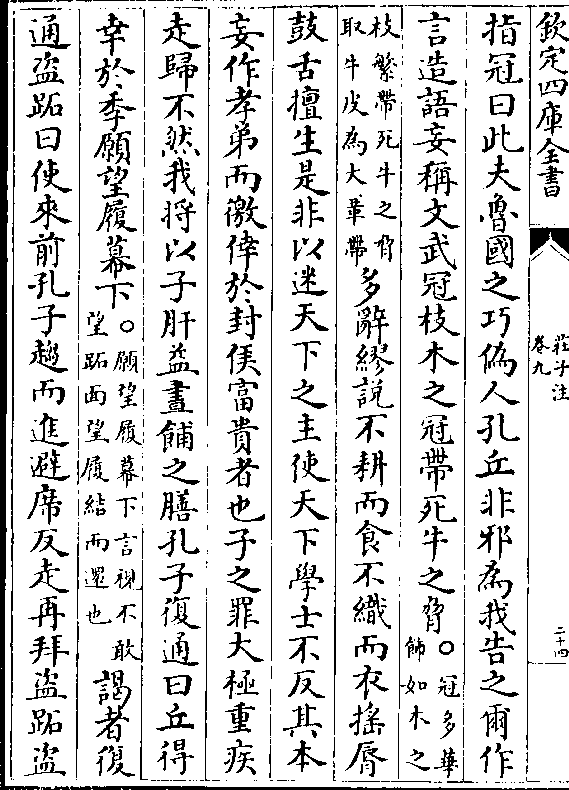 欽定四庫全書
莊子注
卷九
二十四
指冠曰此夫魯國之巧偽人孔丘非邪為我告之爾作
言造語妄稱文武冠枝木之冠帶死牛之脅○冠多華
飾如木之
枝繁帶死牛之脅
取牛皮為大革帶
多辭繆說不耕而食不織而衣搖唇
鼓舌擅生是非以迷天下之主使天下學士不反其本
妄作孝弟而徼倖於封侯富貴者也子之罪大極重疾
走歸不然我將以子肝益晝餔之膳孔子復通曰丘得
幸於季願望履幕下○願望履幕下言視不敢
望跖面望履結而還也
謁者復
通盜跖曰使來前孔子趨而進避席反走再拜盜跖盜